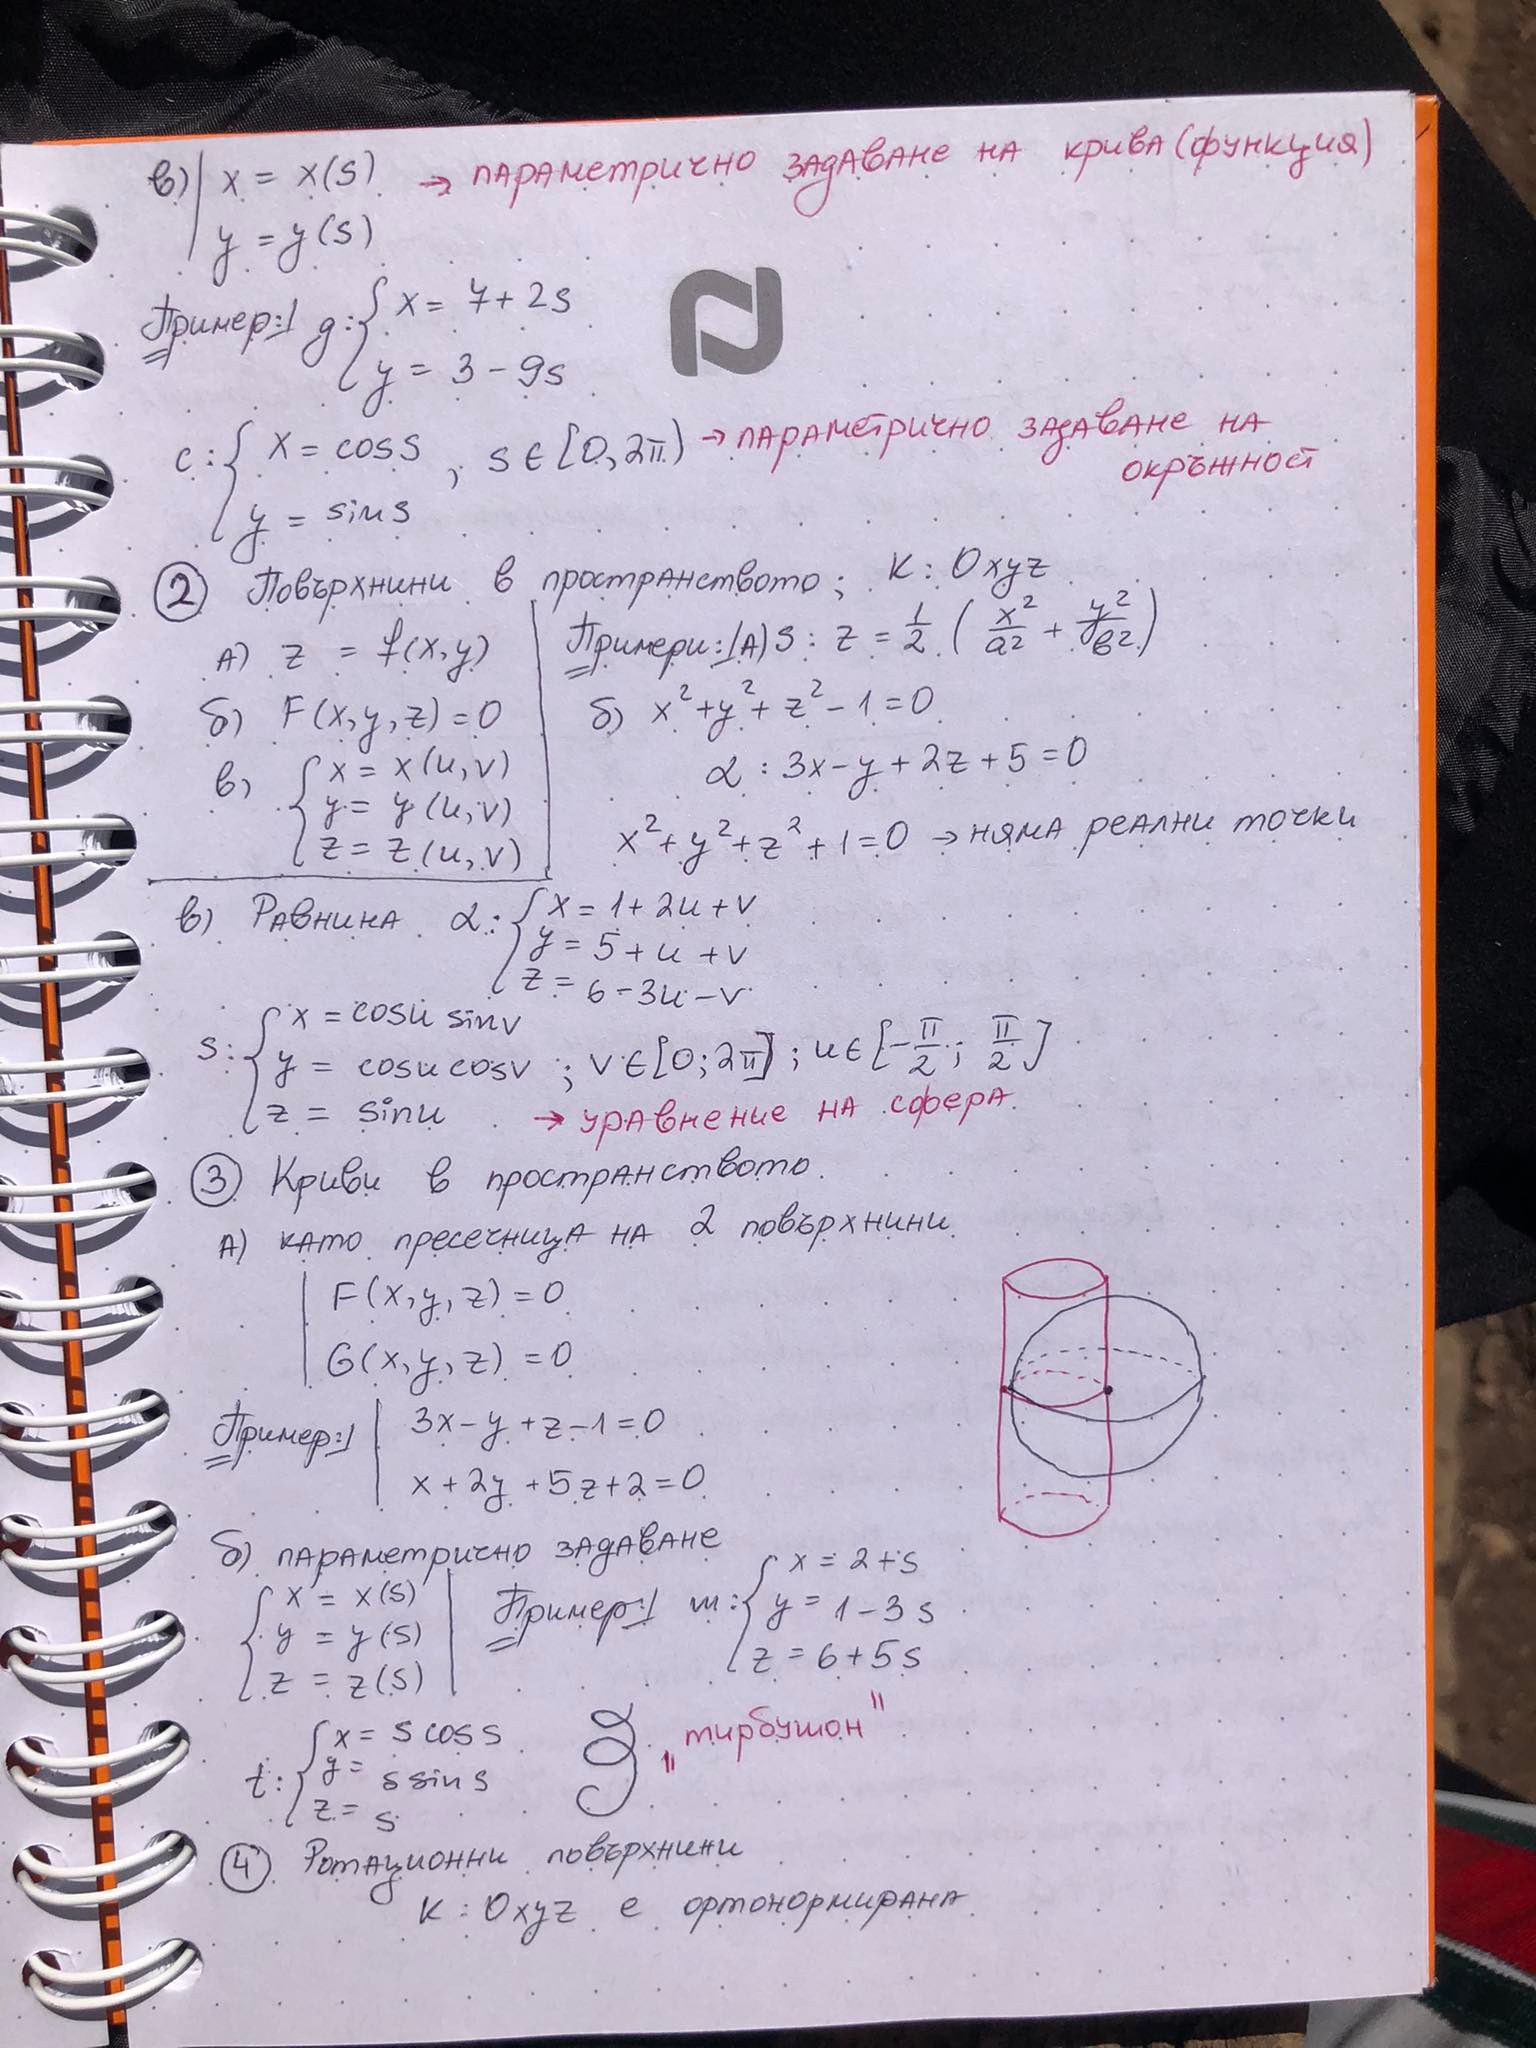 в) | x = x(s) → параметрично задаване на крива (функция)
y = y(s)
Пример:| g: { x = 7 + 2s
y = 3 - 9s
c: { x = cos s , s ∈ [0, 2π) → параметрично задаване на
окръжност
y = sin s
② Повърхнини в пространството; K: Oxyz
а) z = f(x,y) | Примери:| а) S: z = 1/2 (x²/a² + y²/b²)
б) F(x,y,z) = 0 б) x² + y² + z² - 1 = 0
в) { x = x(u,v) α: 3x - y + 2z + 5 = 0
y = y(u,v)
z = z(u,v) x² + y² + z² + 1 = 0 → няма реални точки
в) Равнина α: { x = 1 + 2u + v
y = 5 + u + v
z = 6 - 3u - v
s: { x = cosu sinv
y = cosu cosv ; v ∈ [0; 2π] ; u ∈ [-π/2 ; π/2]
z = sinu → уравнение на сфера
③ Криви в пространството
а) като пресечница на 2 повърхнини
F(x,y,z) = 0
G(x,y,z) = 0
Пример:| 3x - y + z - 1 = 0
x + 2y + 5z + 2 = 0
б) параметрично задаване
{ x = x(s) | Пример:| m: { x = 2 + s
y = y(s) y = 1 - 3s
z = z(s) z = 6 + 5s
t: { x = s cos s „тирбушон"
y = s sin s
z = s
④ Ротационни повърхнини
K: Oxyz е ортонормирана